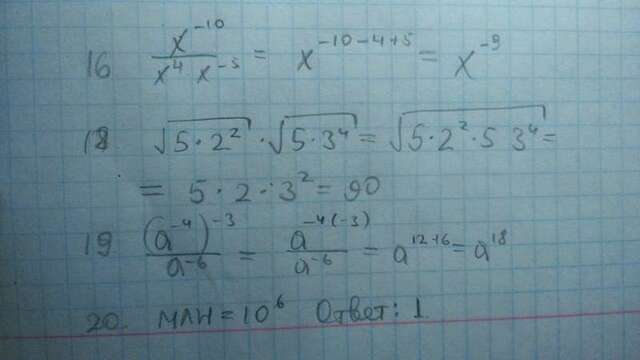 16 x⁻¹⁰ / (x⁴ x⁻⁵) = x⁻¹⁰⁻⁴⁺⁵ = x⁻⁹
18 √(5·2²) · √(5·3⁴) = √(5·2²·5 3⁴) =
= 5·2·3² = 90
19 (a⁻⁴)⁻³ / a⁻⁶ = a⁻⁴⁽⁻³⁾ / a⁻⁶ = a¹²⁺⁶ = a¹⁸
20. МЛН = 10⁶ Ответ: 1.